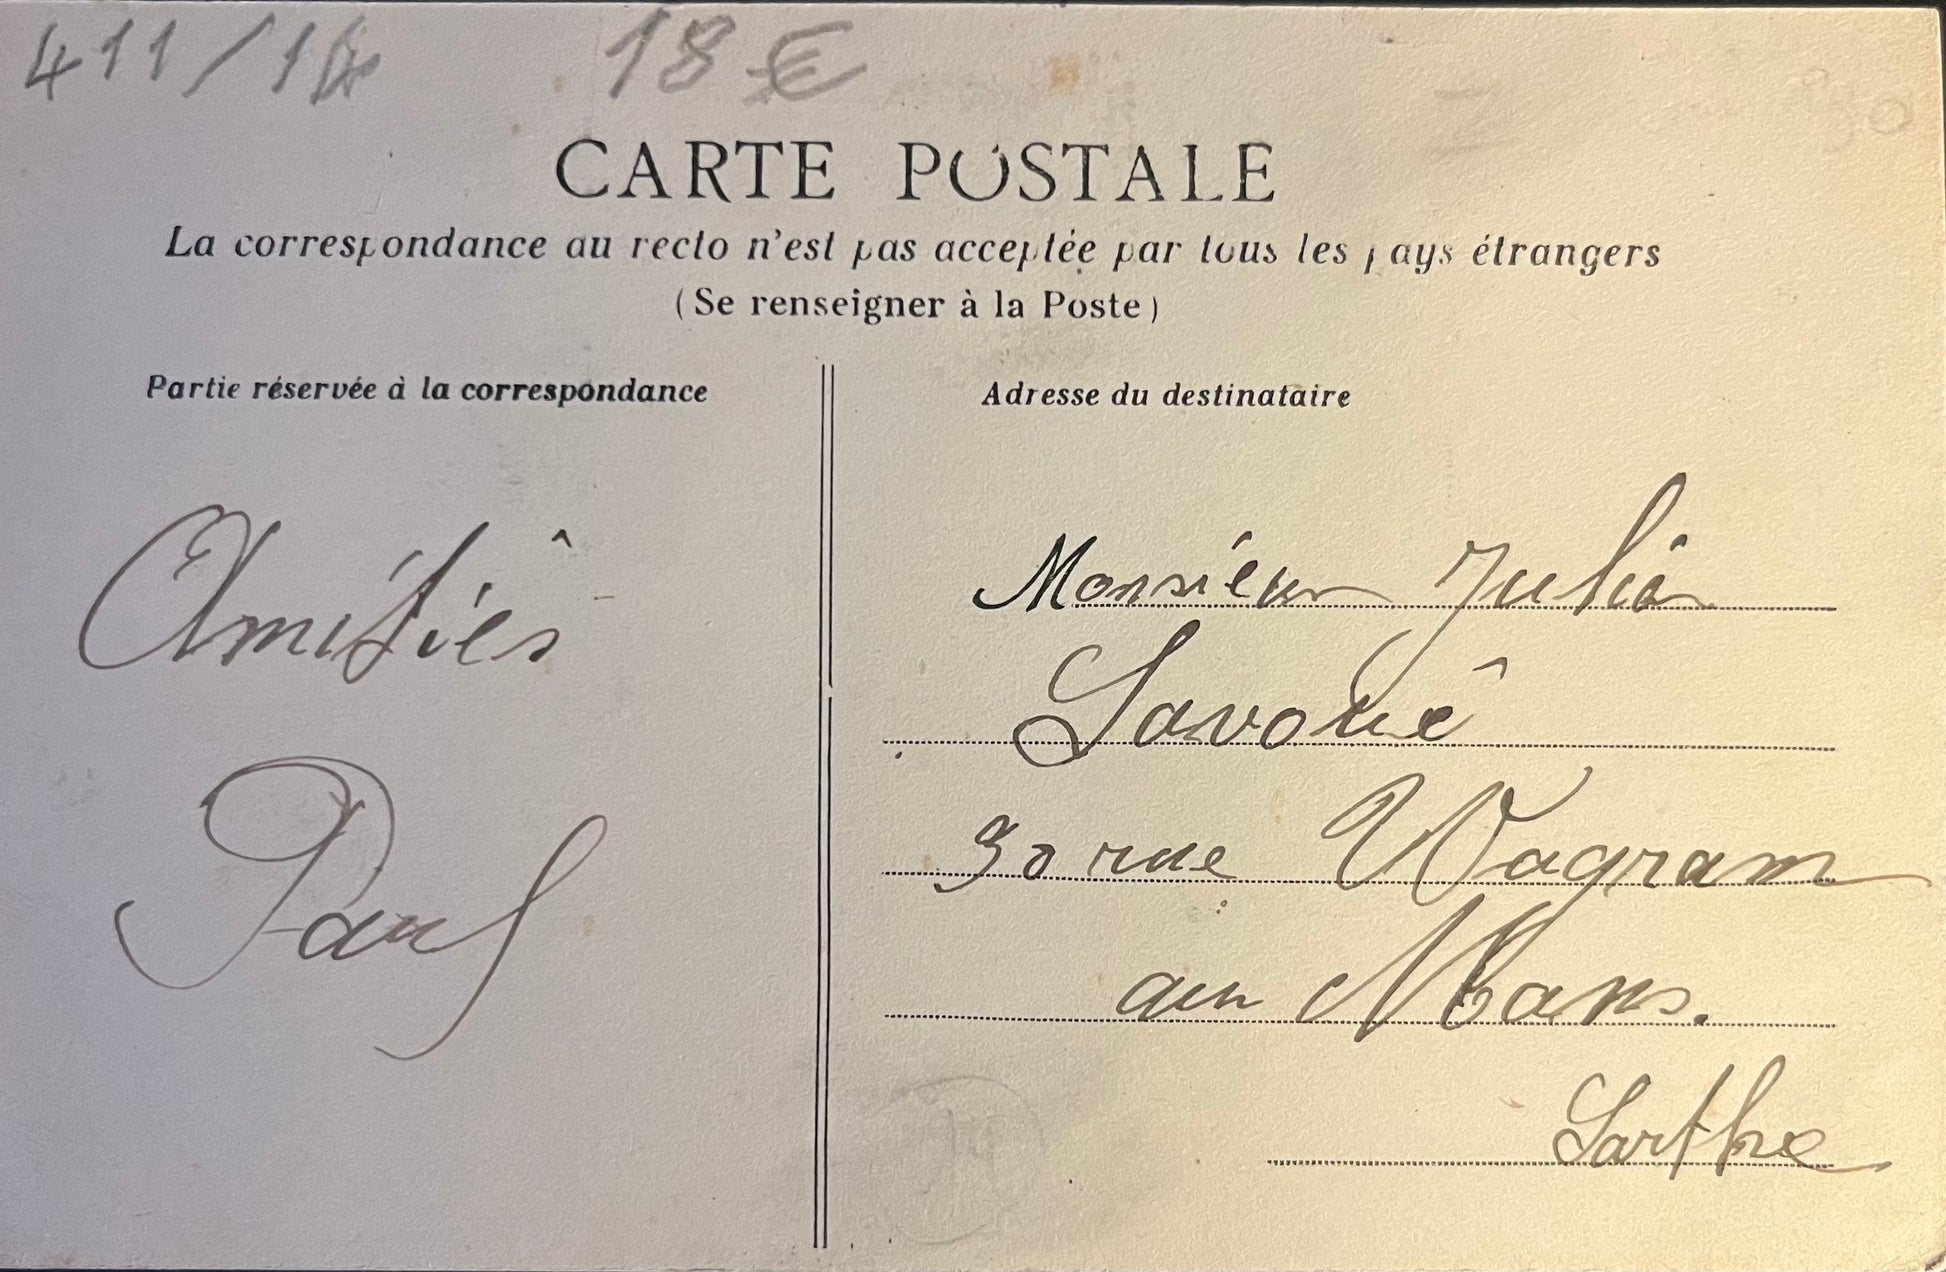 411/14 18 €
CARTE POSTALE
La correspondance au recto n'est pas acceptée par tous les pays étrangers
(Se renseigner à la Poste)
Partie réservée à la correspondance
Adresse du destinataire
Amitiés
Paul
Monsieur Julien
Savoué
30 rue Wagram
au Mans.
Sarthe